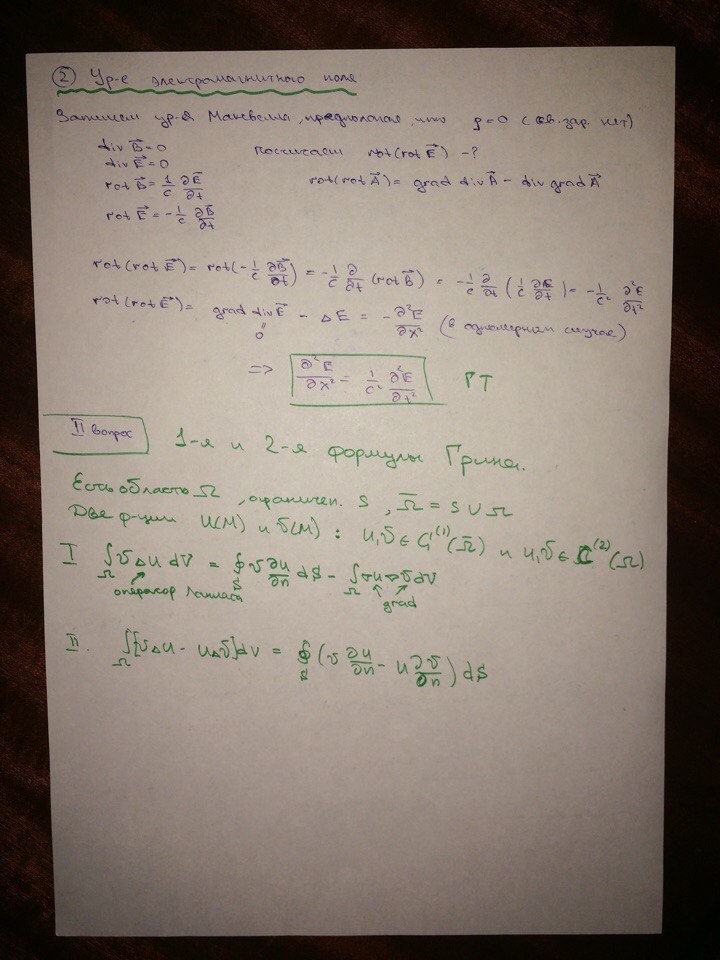 ② Ур-е электромагнитного поля
Запишем ур-я Максвелла, предполагая, что ρ=0 (св. зар. нет)
div B⃗=0 посчитаем rot(rot E⃗) -?
div E⃗=0
rot B⃗= 1/c ∂E⃗/∂t rot(rot A⃗)= grad div A⃗ - div grad A⃗
rot E⃗= -1/c ∂B⃗/∂t
rot(rot E⃗)= rot(-1/c ∂B⃗/∂t) = -1/c ∂/∂t (rot B⃗) = -1/c ∂/∂t (1/c ∂E/∂t)= -1/c² ∂²E/∂t²
rot(rot E⃗)= grad div E⃗ - ΔE = -∂²E/∂x² (в одномерном случае)
0
=> ∂²E/∂x² = 1/c² ∂²E/∂t² РТ
II вопрос 1-я и 2-я формулы Грина.
Есть область Ω, ограничен. S, Ω̅ = S ∪ Ω
Две ф-ции u(M) и v(M) : u,v ∈ C⁽¹⁾(Ω̅) и u,v ∈ C⁽²⁾(Ω)
I ∫_Ω vΔu dV = ∮_S v ∂u/∂n dS - ∫_Ω ∇u ∇v dV
оператор Лапласа grad
II. ∫_Ω [vΔu - uΔv]dV = ∮_S (v ∂u/∂n - u ∂v/∂n) dS